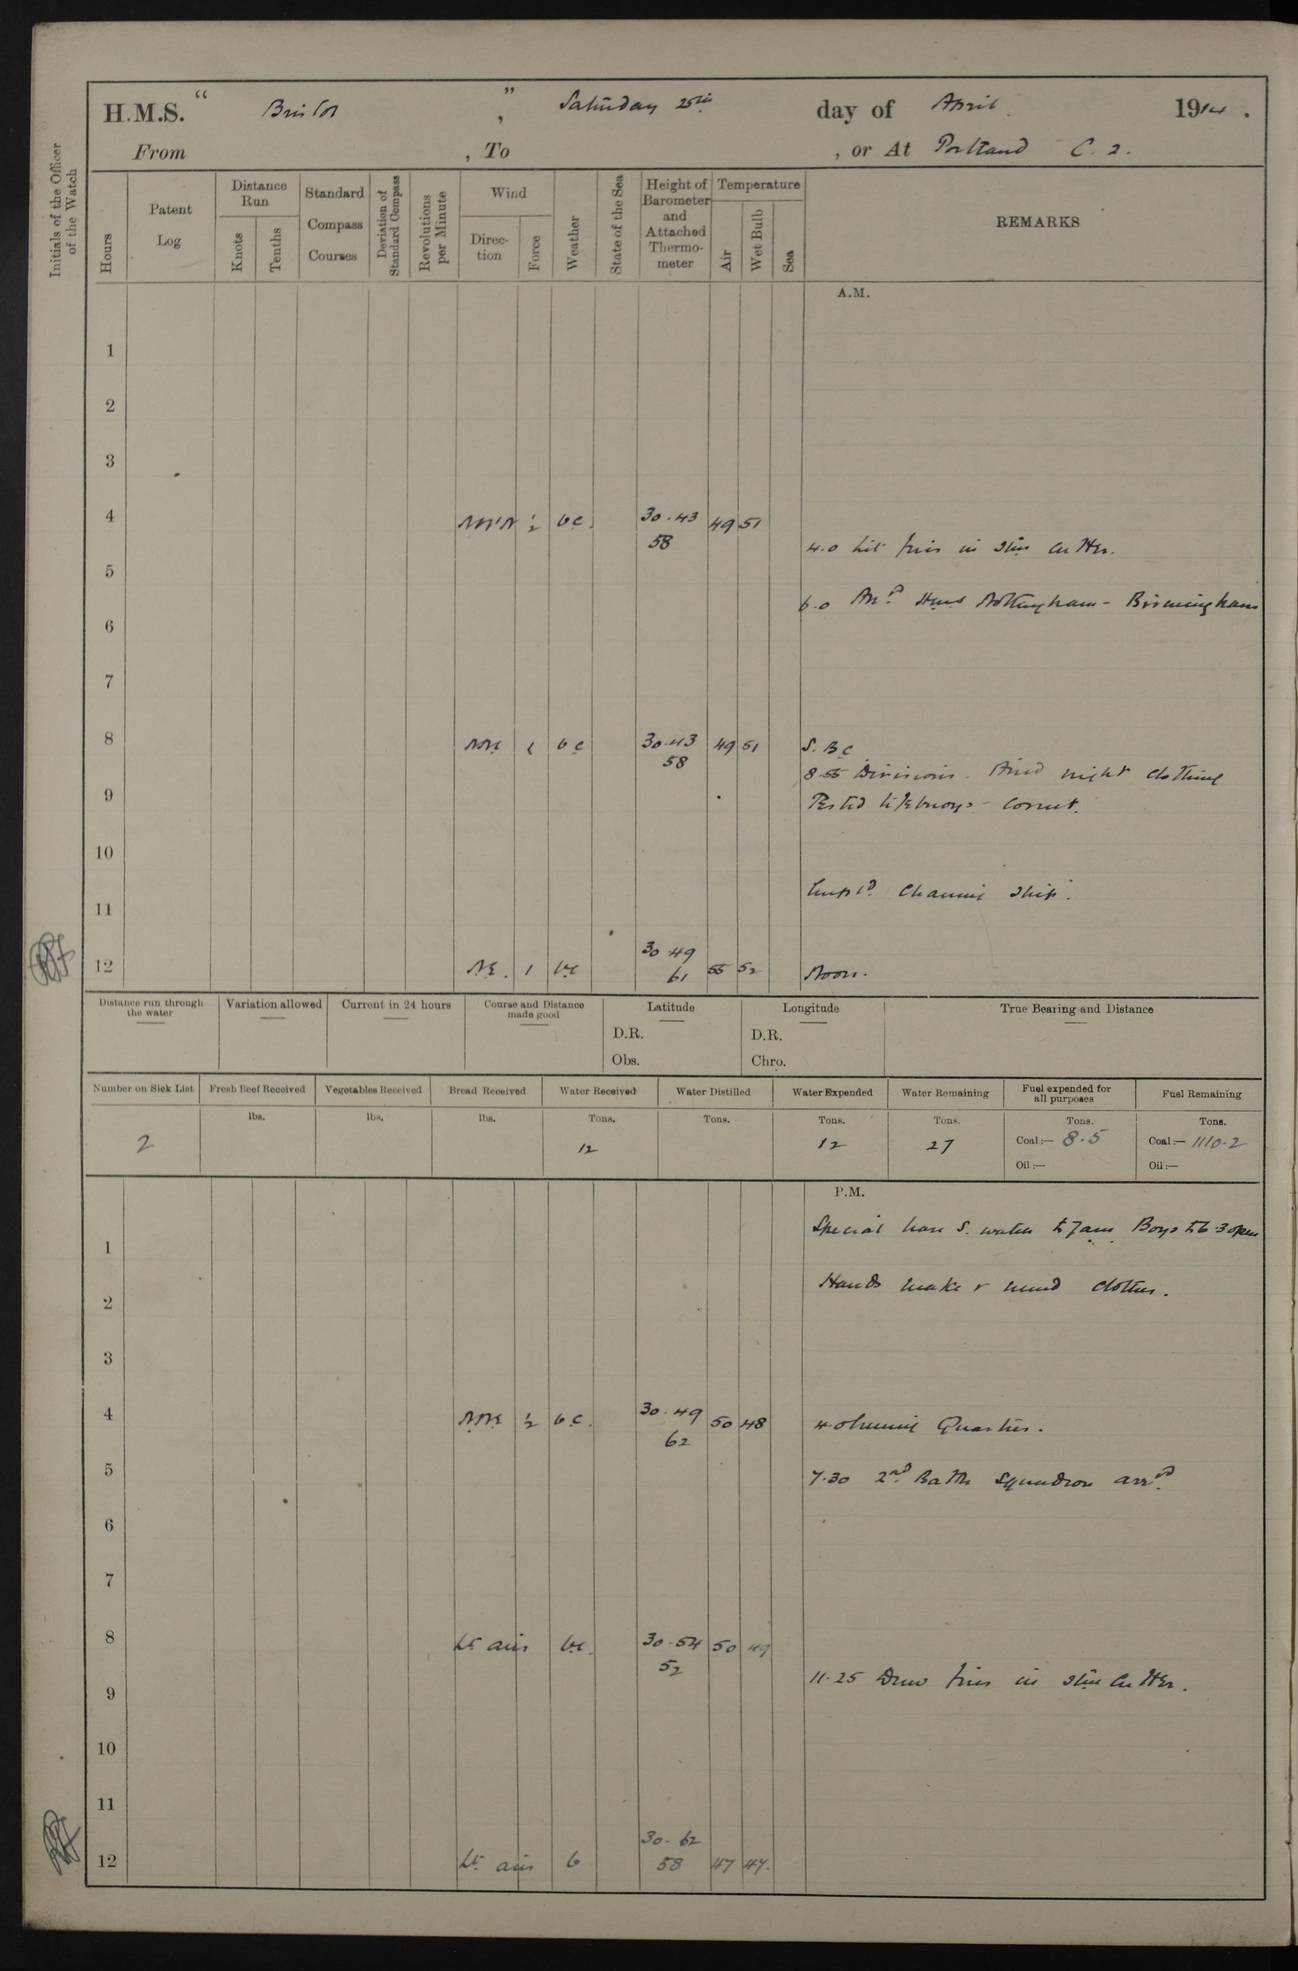 H.M.S. " Bristol ", Saturday 25th day of April 1914.
From , To , or At Portland C. 2.
Initials of the Officer of the Watch
Hours
Patent Log
Distance Run
Knots
Tenths
Standard Compass Courses
Deviation of Standard Compass
Revolutions per Minute
Wind
Direction
Force
Weather
State of the Sea
Height of Barometer and Attached Thermometer
Temperature
Air
Wet Bulb
Sea
REMARKS
A.M.
1
2
3
4 1/2 bc. 30.43 49 51
58
4.0 Lit fires in Stm Cutter.
5
6.0 Arrd HMS Nottingham - Birmingham
6
7
8 NNE 1 bc 30.43 49 51 S. B C
58
8.55 Divisions. Aired night clothing
9
Tested lifebuoys - correct.
10
Empld. cleaning ship.
11
30 49
12 NE. 1 bc 61 55 52 Noon.
Distance run through the water
Variation allowed
Current in 24 hours
Course and Distance made good
Latitude
D.R.
Obs.
Longitude
D.R.
Chro.
True Bearing and Distance
Number on Sick List
Fresh Beef Received
Vegetables Received
Bread Received
Water Received
Water Distilled
Water Expended
Water Remaining
Fuel expended for all purposes
Fuel Remaining
lbs. lbs. lbs. Tons. Tons. Tons. Tons. Tons. Tons.
2 12 12 27 Coal:— 8.5 Coal:— 1110.2
Oil:— Oil:—
P.M.
Special leave S. watch to 7am Boys to 6.30pm
1
Hands make & mend clothes.
2
3
4 NNE 1/2 bc. 30.49 50 48 4.0 Evening Quarters.
62
5
7.30 2nd Battle Squadron arrd.
6
7
8 Lt airs bc. 30.54 50 49
52
11.25 Drew fires in Stm Cutter.
9
10
11
30.62
12 Lt airs b 58 47 47.